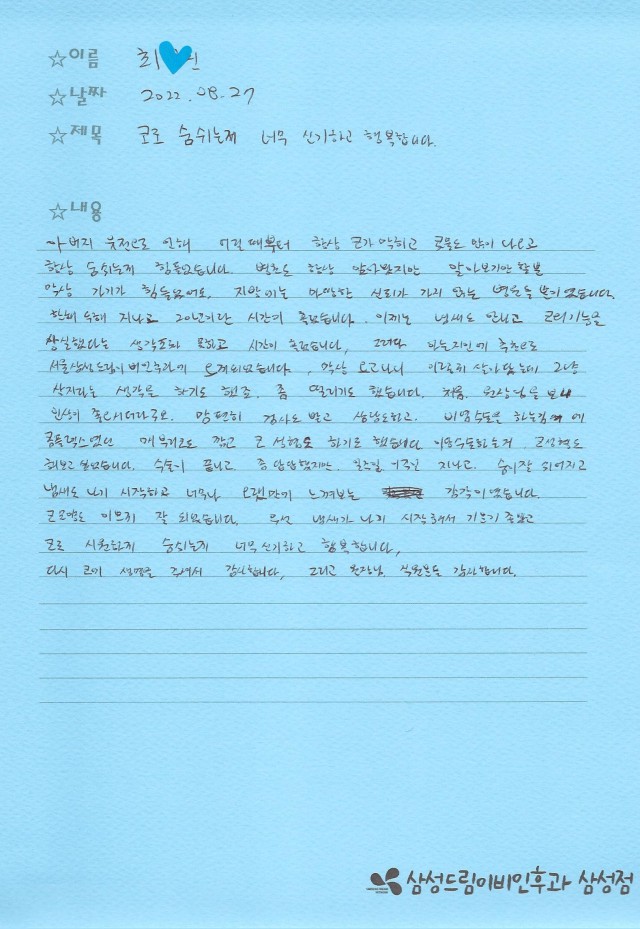 ☆이름 최 인
☆날짜 2022.08.27
☆제목 코로 숨쉬는게 너무 신기하고 행복합니다.
☆내용
아버지 유전으로 인해 어릴때부터 항상 코가 막히고 콧물도 많이 나오고
항상 숨쉬는게 힘들었습니다. 병원도 항상 알아봤지만 알아보기만 할뿐
막상 가기가 힘들었어요, 지방에는 마땅한 신뢰가 가지 않는 병원들 뿐이였습니다.
한해 두해 지나고 20년가량 시간이 흘렀습니다. 이제는 냄새도 안나고 코의기능을
상실했다는 생각조차 못하고 시간이 흘렀습니다, 그러다 아는지인에 추천으로
서울삼성드림이비인후과에 오게되었습니다, 막상 오고나니 이대로 살아왔는데 그냥
살자라는 생각을 하기도 했죠. 좀 떨리기도 했습니다. 처음 원장님을 보니
인상이 좋으시더라구요. 맘편히 검사도 받고 상담도하고. 비염수술을 하는김에
콤플렉스였던 매부리코도 깎고 코 성형도 하기로 했습니다 비염수술하는거. 코성형도
해보고 싶었습니다. 수술이 끝나고 좀 답답했지만. 일주일 이주일 지나고. 숨이잘 쉬어지고
냄새도 나기 시작하고 너무나 오랜만에 느껴보는 감각이였습니다.
코모양도 이쁘게 잘 되었습니다. 우선 냄새가 나기 시작해서 기분이 좋았고
코로 시원하게 숨쉬는게 너무신기하고 행복합니다,
다시 코의 생명을 주셔서 감사합니다, 그리고 원장님. 직원분들 감사합니다.
삼성드림이비인후과 삼성점